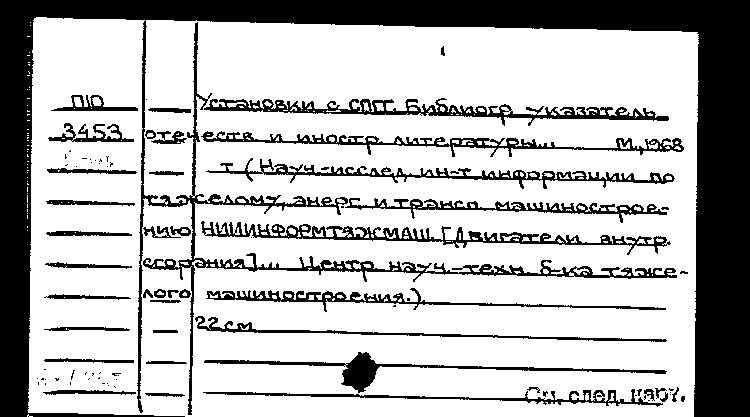 П10 Установки с СПГГ. Библиогр указатель
3453 отечеств и иностр литературы... М., 1968
т (Науч.-исслед. ин-т информации по
тяжелому, энерг. и трансп. машинострое-
нию НИИИНФОРМТЯЖМАШ. [Двигатели внутр.
сгорания]... Центр науч.-техн. б-ка тяже-
лого машиностроения.).
22 см
См. след. карт.